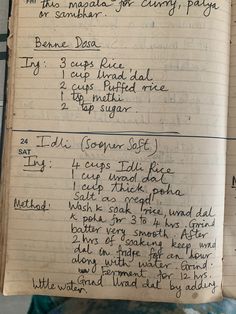 this masala for curry, palya
or sambhar.
Benne Dosa
Ing: 3 cups Rice
1 cup Urad dal
2 cups Puffed rice
1 tsp methi
2 tsp sugar
24
SAT
Idli (Sooper Soft)
Ing: 4 cups Idli Rice
1 cup urad dal
1 cup thick poha
Salt as reqd
Method: Wash & soak rice, urad dal
& poha for 3 to 4 hrs. Grind
batter very smooth. After
2 hrs of soaking keep urad
dal in fridge for an hour
along with water. Grind.
Ferment for 12 hrs.
Grind Urad dal by adding
little water.